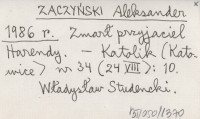 ZACZYŃSKI Aleksander
1986 r. Zmarł przyjaciel
Harendy. – Katolik (Kato-
wice) nr 34 (24 VIII): 10.
Władysław Studencki.